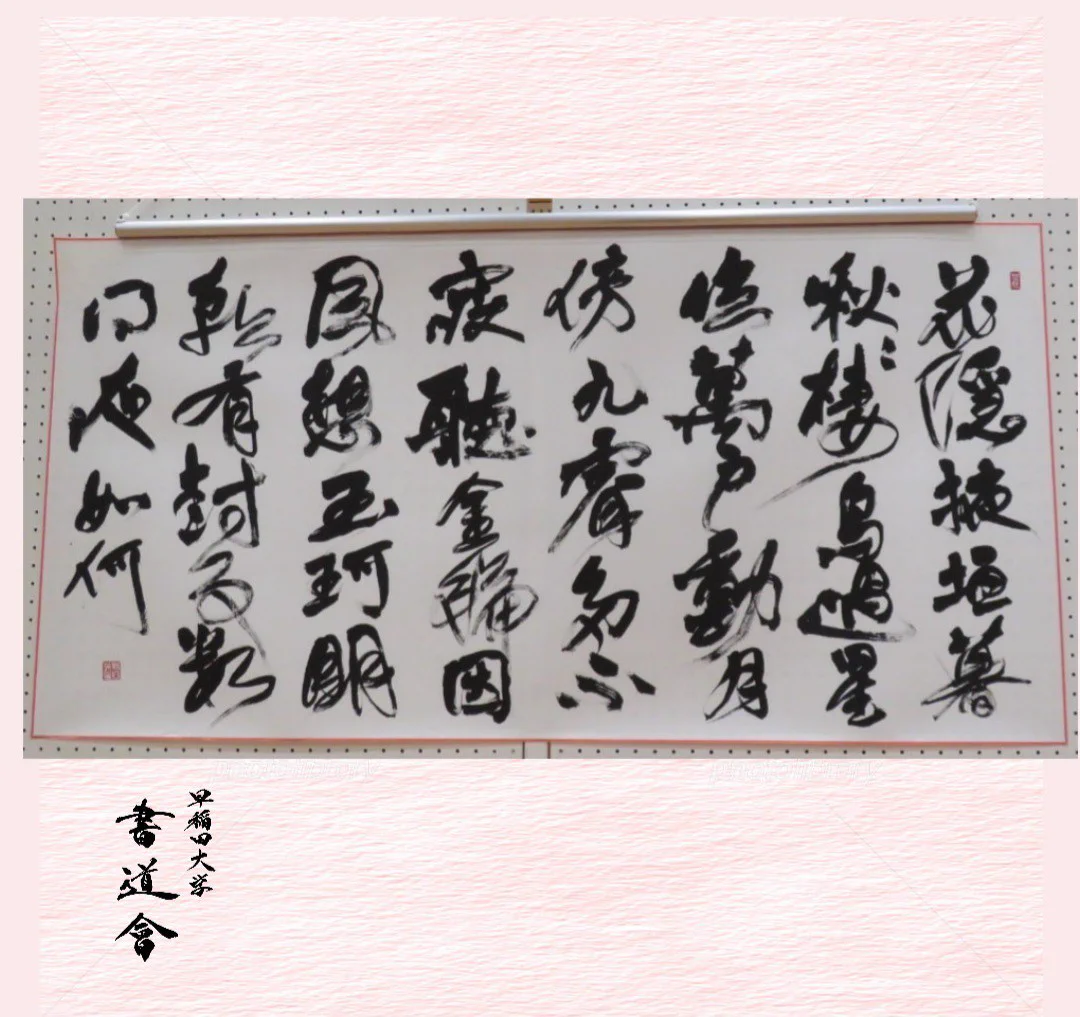 花隱掖垣暮
啾〻棲鳥過星
臨萬戶動月
傍九霄多不
寢聽金鑰因
風想玉珂明
朝有封事數
問夜如何
早稲田大学
書道會